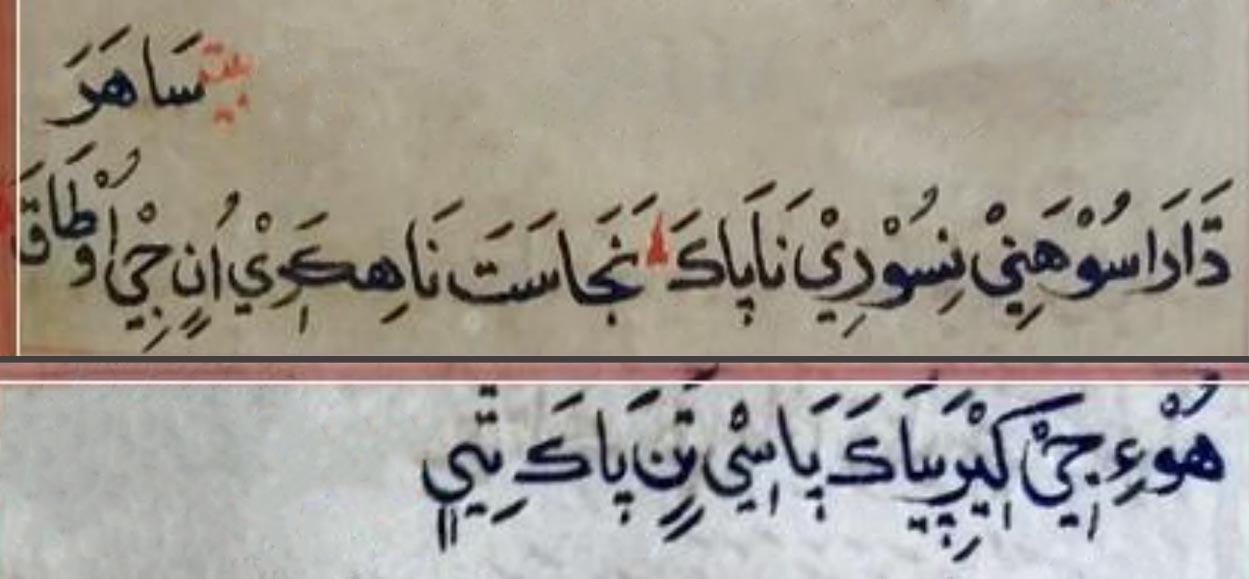 بيت سَاهَرَ
دَّارَا سُوْهَنِيْ نِسُوْرِيْ نَاپَاكَ نَجَاسَتَ نَاهِكَرِيْ اُنِ جِيْ اُوْطَاقَ
هُوْءِ جِيْ كِيْرِ پِيَاكَ پَاسِيْ تَنِ پَاكَ تِيِي